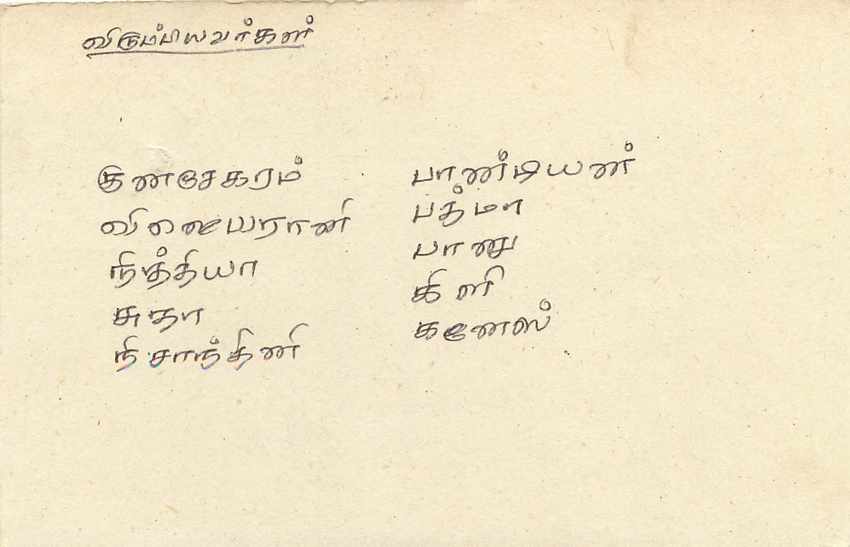 விரும்பியவர்கள்
குணசேகரம்
விஜையராணி
நித்தியா
சுதா
நிசாந்தினி
பாண்டியன்
பத்மா
பானு
கிளி
கனேஸ்